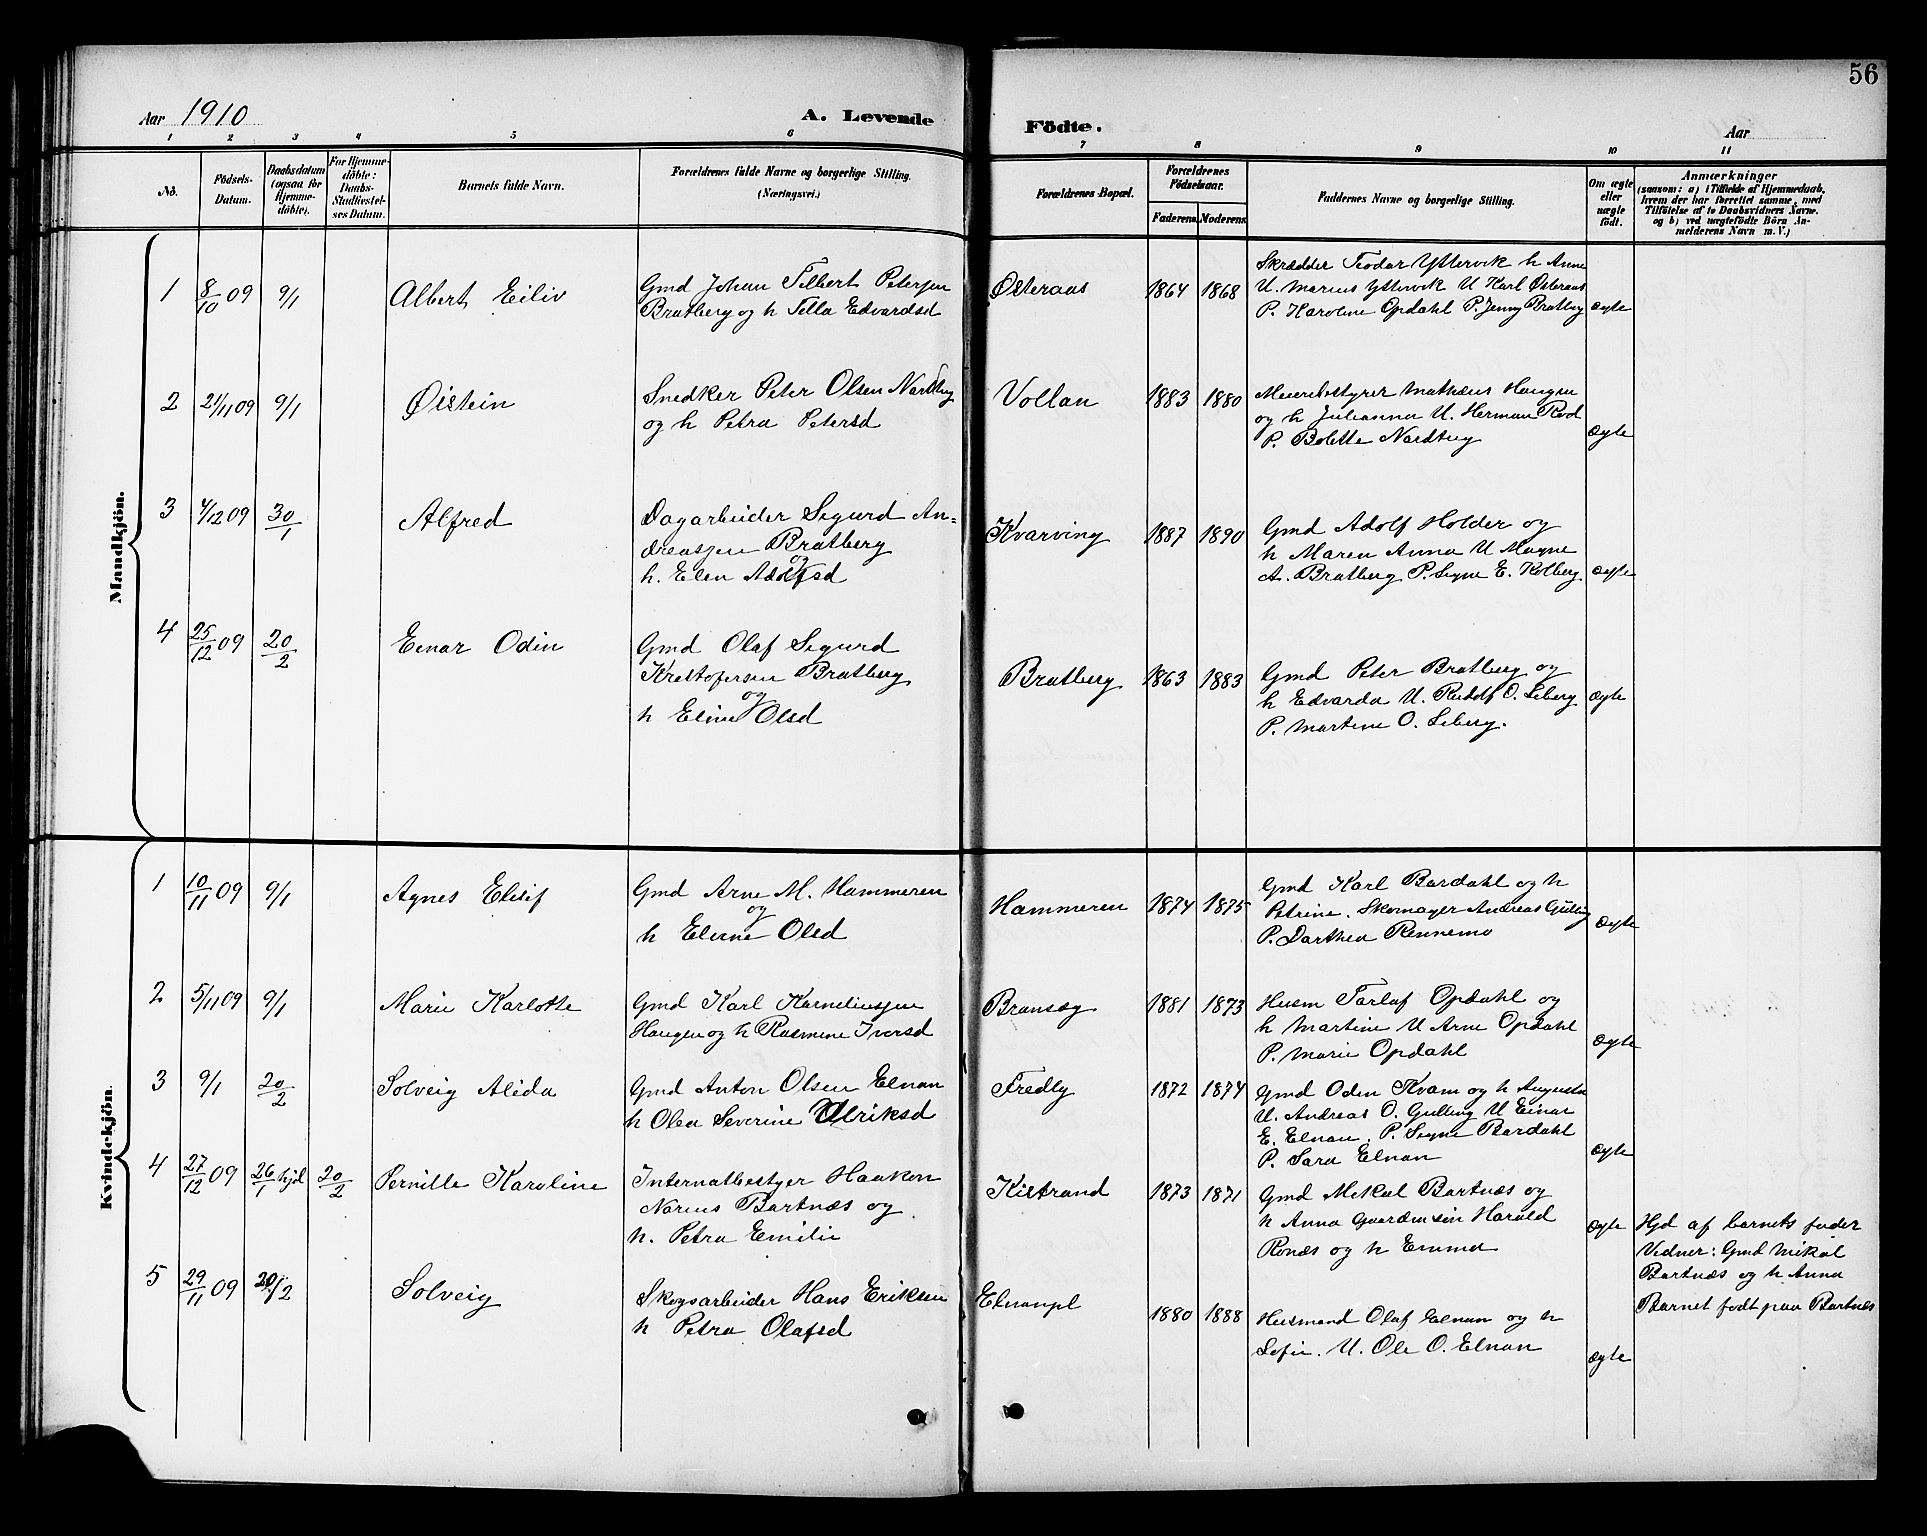 56
Aar 1910 A. Levende Födte. Aar
1 2 3 4 5 6 7 8 9 10 11
No.
Födsels-
Datum.
Daabsdatum
(ogsaa for
Hjemme-
döbte).
For Hjemme-
döbte:
Daabs-
Stadfæstel-
ses Datum.
Barnets fulde Navn.
Forældrenes fulde Navne og borgerlige Stilling.
(Næringsvei.)
Forældrenes Bopæl.
Forældrenes
Födselsaar.
Faderens. Moderens.
Faddernes Navne og borgerlige Stilling.
Om ægte
eller
uægte
født.
Anmærkninger
(saasom: a) i Tilfælde af Hjemmedaab,
hvem der har forrettet samme, med
Tilföielse af to Daabsvidners Navne.
og b) ved uægtefödte Börn An-
melderens Navn m. V.)
Mandkjön.
1 8/10 09 9/1 Albert Eiliv
Gmd Johan Tilbert Petersen
Bratberg og h Tella Edvardsd
Østeraas 1864 1868
Skrædder Teodor Yttervik h Anne
U. Marius Yttervik U Karl Østeraas
P. Karoline Opdahl P. Jenny Bratberg ægte
2 21/11 09 9/1 Øistein
Snedker Peter Olsen Nordberg
og h Petra Petersd
Vollan 1883 1880
Meieribestyrer Mathæus Haugen
og h Julianna U. Herman Rod
P. Bolette Nordberg ægte
3 4/12 09 30/1 Alfred
Dagarbeider Sigurd An-
dreasen Bratberg
og
h. Elen Adolfsd
Kvarving 1887 1890
Gmd Adolf Holder og
h Maren Anna U Magne
A. Bratberg P. Signe E. Kolberg. ægte
4 25/12 09 20/2 Einar Odin
Gmd Olaf Sigurd
Kristofersen Bratberg
og
h Eline Olsd
Bratberg 1863 1883
Gmd Peter Bratberg og
h Edvarda U. Rudolf O. Leberg
P. Martine O. Leberg. ægte
Kvindekjön.
1 10/11 09 9/1 Agnes Elisif
Gmd Arne M. Hammeren
og
h Elerne Olsd
Hammeren 1874 1875
Gmd Karl Bardahl og h
Petrine. Skomager Andreas Gulling
P. Darthea Rennemo ægte
2 5/11 09 9/1 Marie Karlotte
Gmd Karl Korneliussen
Haugen og h Rasmine Iversd
Bransæg 1881 1873
Husm Torlaf Opdahl og
h Martine U Arne Opdahl
P. Marie Opdahl ægte
3 9/1 20/2 Solveig Alida
Gmd Anton Olsen Elnan
h Olea Severine Ulriksd
Fredly 1872 1874
Gmd Oden Kvam og h Augusta
U. Andreas O. Gulling U Einar
E. Elnan. P. Signe Bardahl
P. Sara Elnan ægte
4 27/12 09 26/1 hjd 20/2 Pernille Karoline
Internatbestyer Haakon
Narius Bartnæs og
h. Petra Emilie
Kistrand 1873 1871
Gmd Mikal Bartnæs og
h Anna Harald
Ronæs og h Emma ægte
Hjd af barnets fader
Vidner: Gmd Mikal
Bartnæs og h Anna
Barnet født paa Bartnæs
5 29/11 09 20/2 Solveig
Skogsarbeider Hans Eriksen
h Petra Olafsd
Elnanpl 1880 1888
Husmand Olaf Elnan og h
Sofie. U. Ole O. Elnan ægte